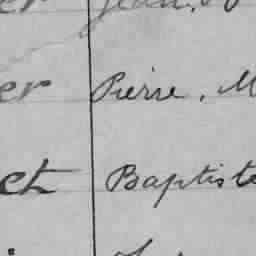 er Jean
er Pierre, M
et Baptiste